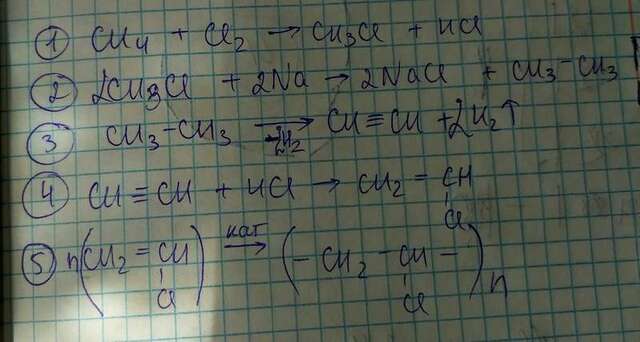 ① CH4 + Cl2 → CH3Cl + HCl
② 2CH3Cl + 2Na → 2NaCl + CH3-CH3
③ CH3-CH3 → CH≡CH + 2H2↑
-2H2
④ CH≡CH + HCl → CH2 = CH
Cl
⑤ n(CH2 = CH) кат → (- CH2 - CH -)n
Cl Cl